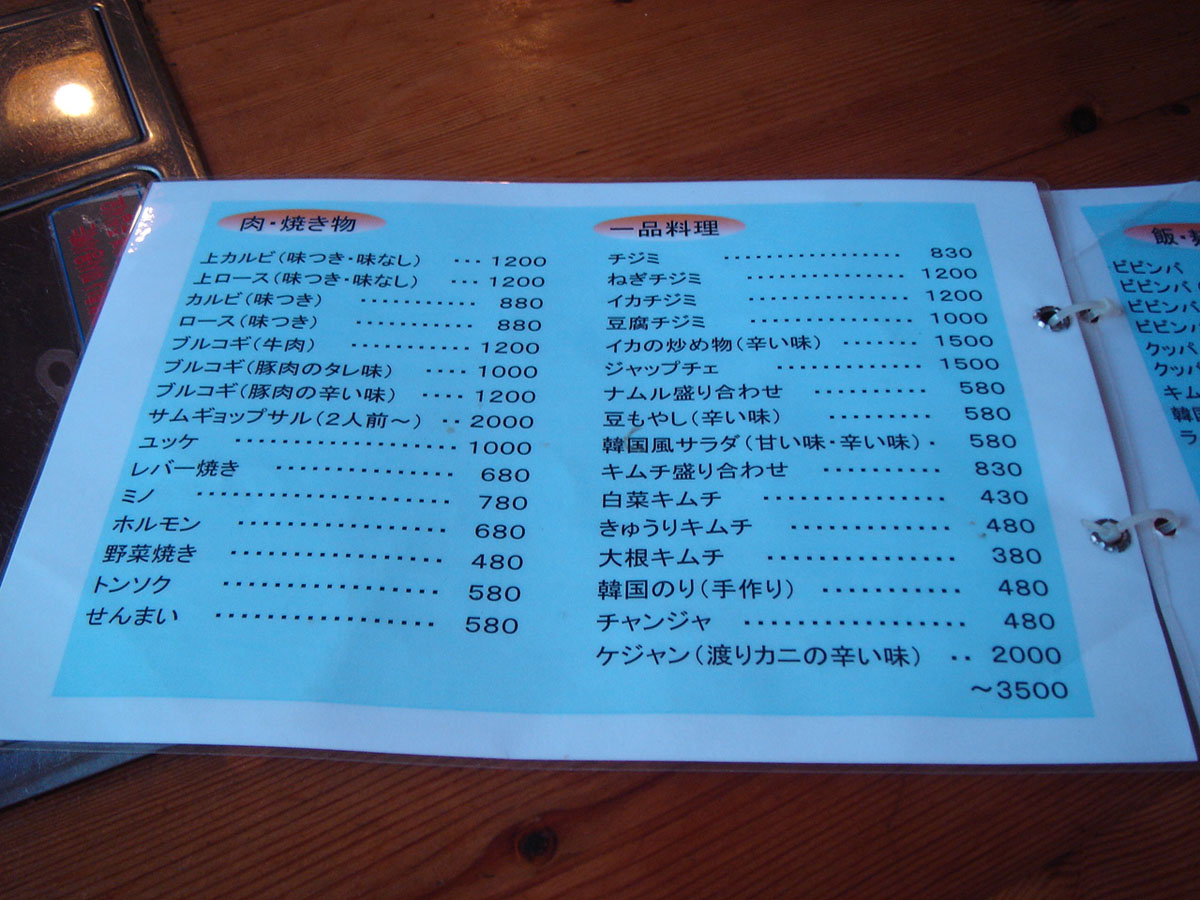 肉・焼き物
上カルビ(味つき・味なし) ‥・ 1200
上ロース(味つき・味なし) ‥・ 1200
カルビ(味つき) ・・・・・・・・・・・ 880
ロース(味つき) ・・・・・・・・・・・ 880
ブルコギ(牛肉) ・・・・・・・・・・・ 1200
ブルコギ(豚肉のタレ味) ・・・・ 1000
ブルコギ(豚肉の辛い味) ・・・・ 1200
サムギョップサル(2人前～) ・・ 2000
ユッケ ・・・・・・・・・・・・・・・・・・ 1000
レバー焼き ・・・・・・・・・・・・・・ 680
ミノ ・・・・・・・・・・・・・・・・・・・・ 780
ホルモン ・・・・・・・・・・・・・・・・ 680
野菜焼き ・・・・・・・・・・・・・・・・ 480
トンソク ・・・・・・・・・・・・・・・・ 580
せんまい ・・・・・・・・・・・・・・・・ 580
一品料理
チジミ ・・・・・・・・・・・・・・・・・ 830
ねぎチジミ ・・・・・・・・・・・・・・ 1200
イカチジミ ・・・・・・・・・・・・・・ 1200
豆腐チジミ ・・・・・・・・・・・・・・ 1000
イカの炒め物(辛い味) ・・・・・・ 1500
ジャップチェ ・・・・・・・・・・・・ 1500
ナムル盛り合わせ ・・・・・・・・・・ 580
豆もやし(辛い味) ・・・・・・・・・ 580
韓国風サラダ(甘い味・辛い味)・ 580
キムチ盛り合わせ ・・・・・・・・・・ 830
白菜キムチ ・・・・・・・・・・・・・・ 430
きゅうりキムチ ・・・・・・・・・・・・ 480
大根キムチ ・・・・・・・・・・・・・・ 380
韓国のり(手作り) ・・・・・・・・・ 480
チャンジャ ・・・・・・・・・・・・・・・ 480
ケジャン(渡りカニの辛い味) ・・ 2000
～3500
飯・
ビビンバ
ビビンバ
ビビンバ
ビビンバ
クッパ
クッパ
キム
韓国
ラ